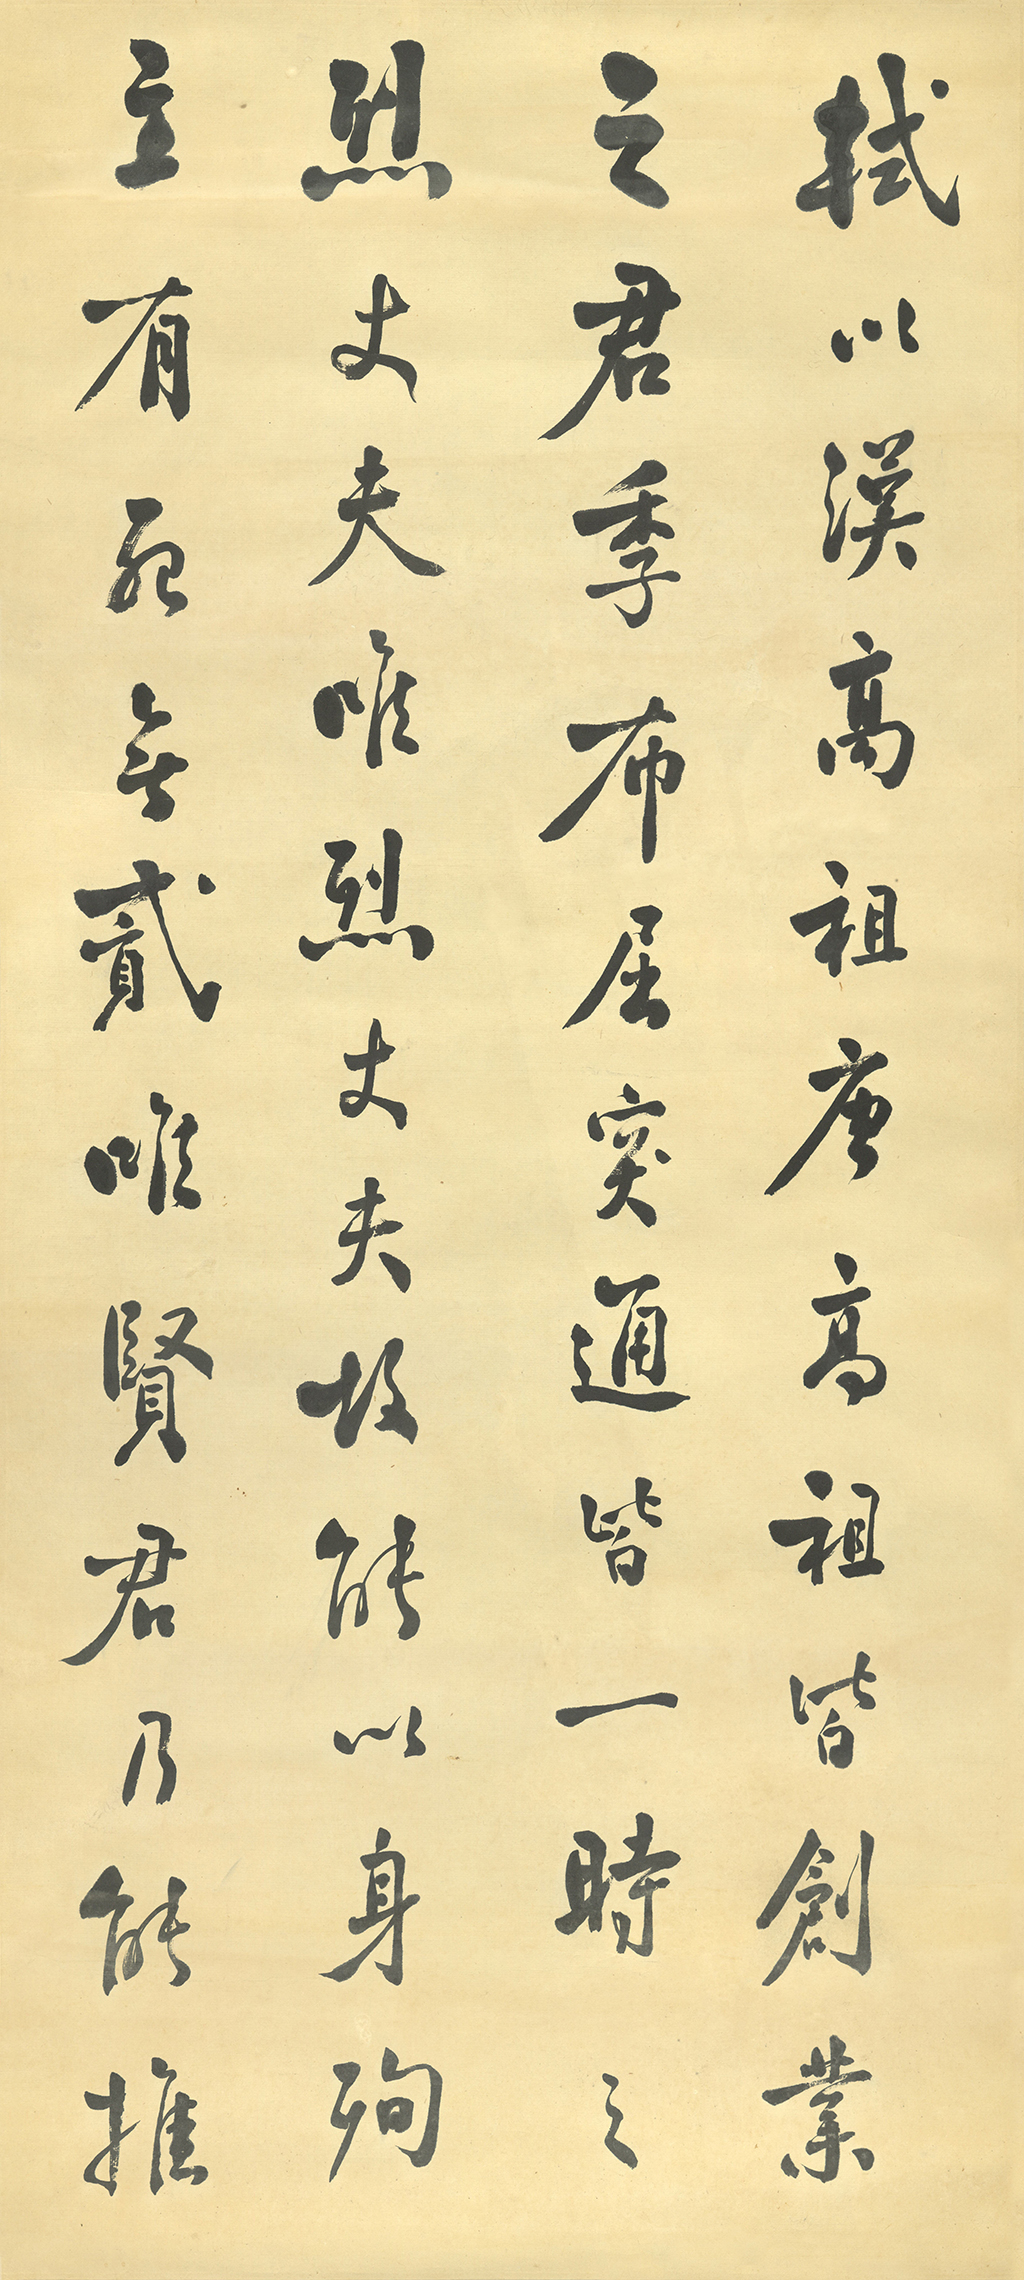 拭以漢高祖唐高祖皆創業
之君季布屈突通皆一時之
烈丈夫唯烈丈夫故能以身殉
主有死無貳唯賢君乃能推